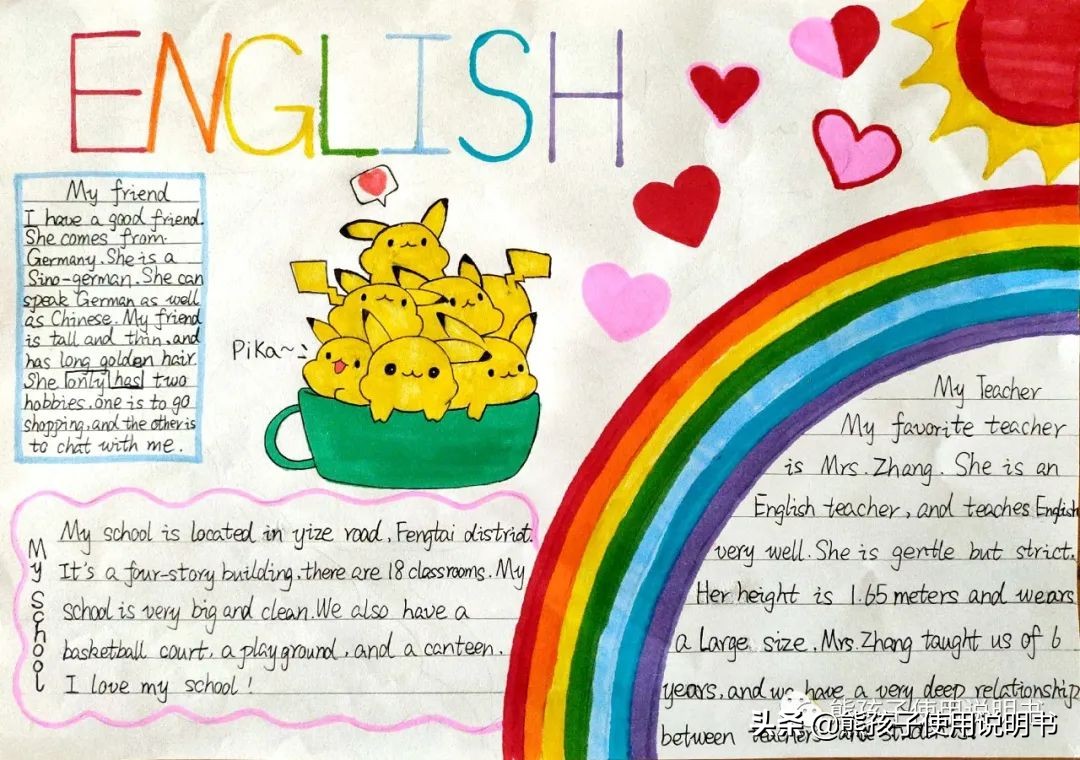 ENGLISH
My friend
I have a good friend.
She comes from
Germany. She is a
Sino-german. She can
speak German as well
as Chinese. My friend
is tall and thin, and
has long golden hair.
She only has two
hobbies, one is to go
shopping, and the other is
to chat with me.
Pika~
My School
My school is located in yize road, Fengtai district.
It's a four-story building, there are 18 classrooms. My
school is very big and clean. We also have a
basketball court, a playground, and a canteen.
I love my school!
My Teacher
My favorite teacher
is Mrs. Zhang. She is an
English teacher, and teaches English
very well. She is gentle but strict.
Her height is 1.65 meters and wears
a Large size. Mrs. Zhang taught us of 6
years, and we have a very deep relationship
between teachers and
熊孩子使用说明书
头条 @熊孩子使用说明书